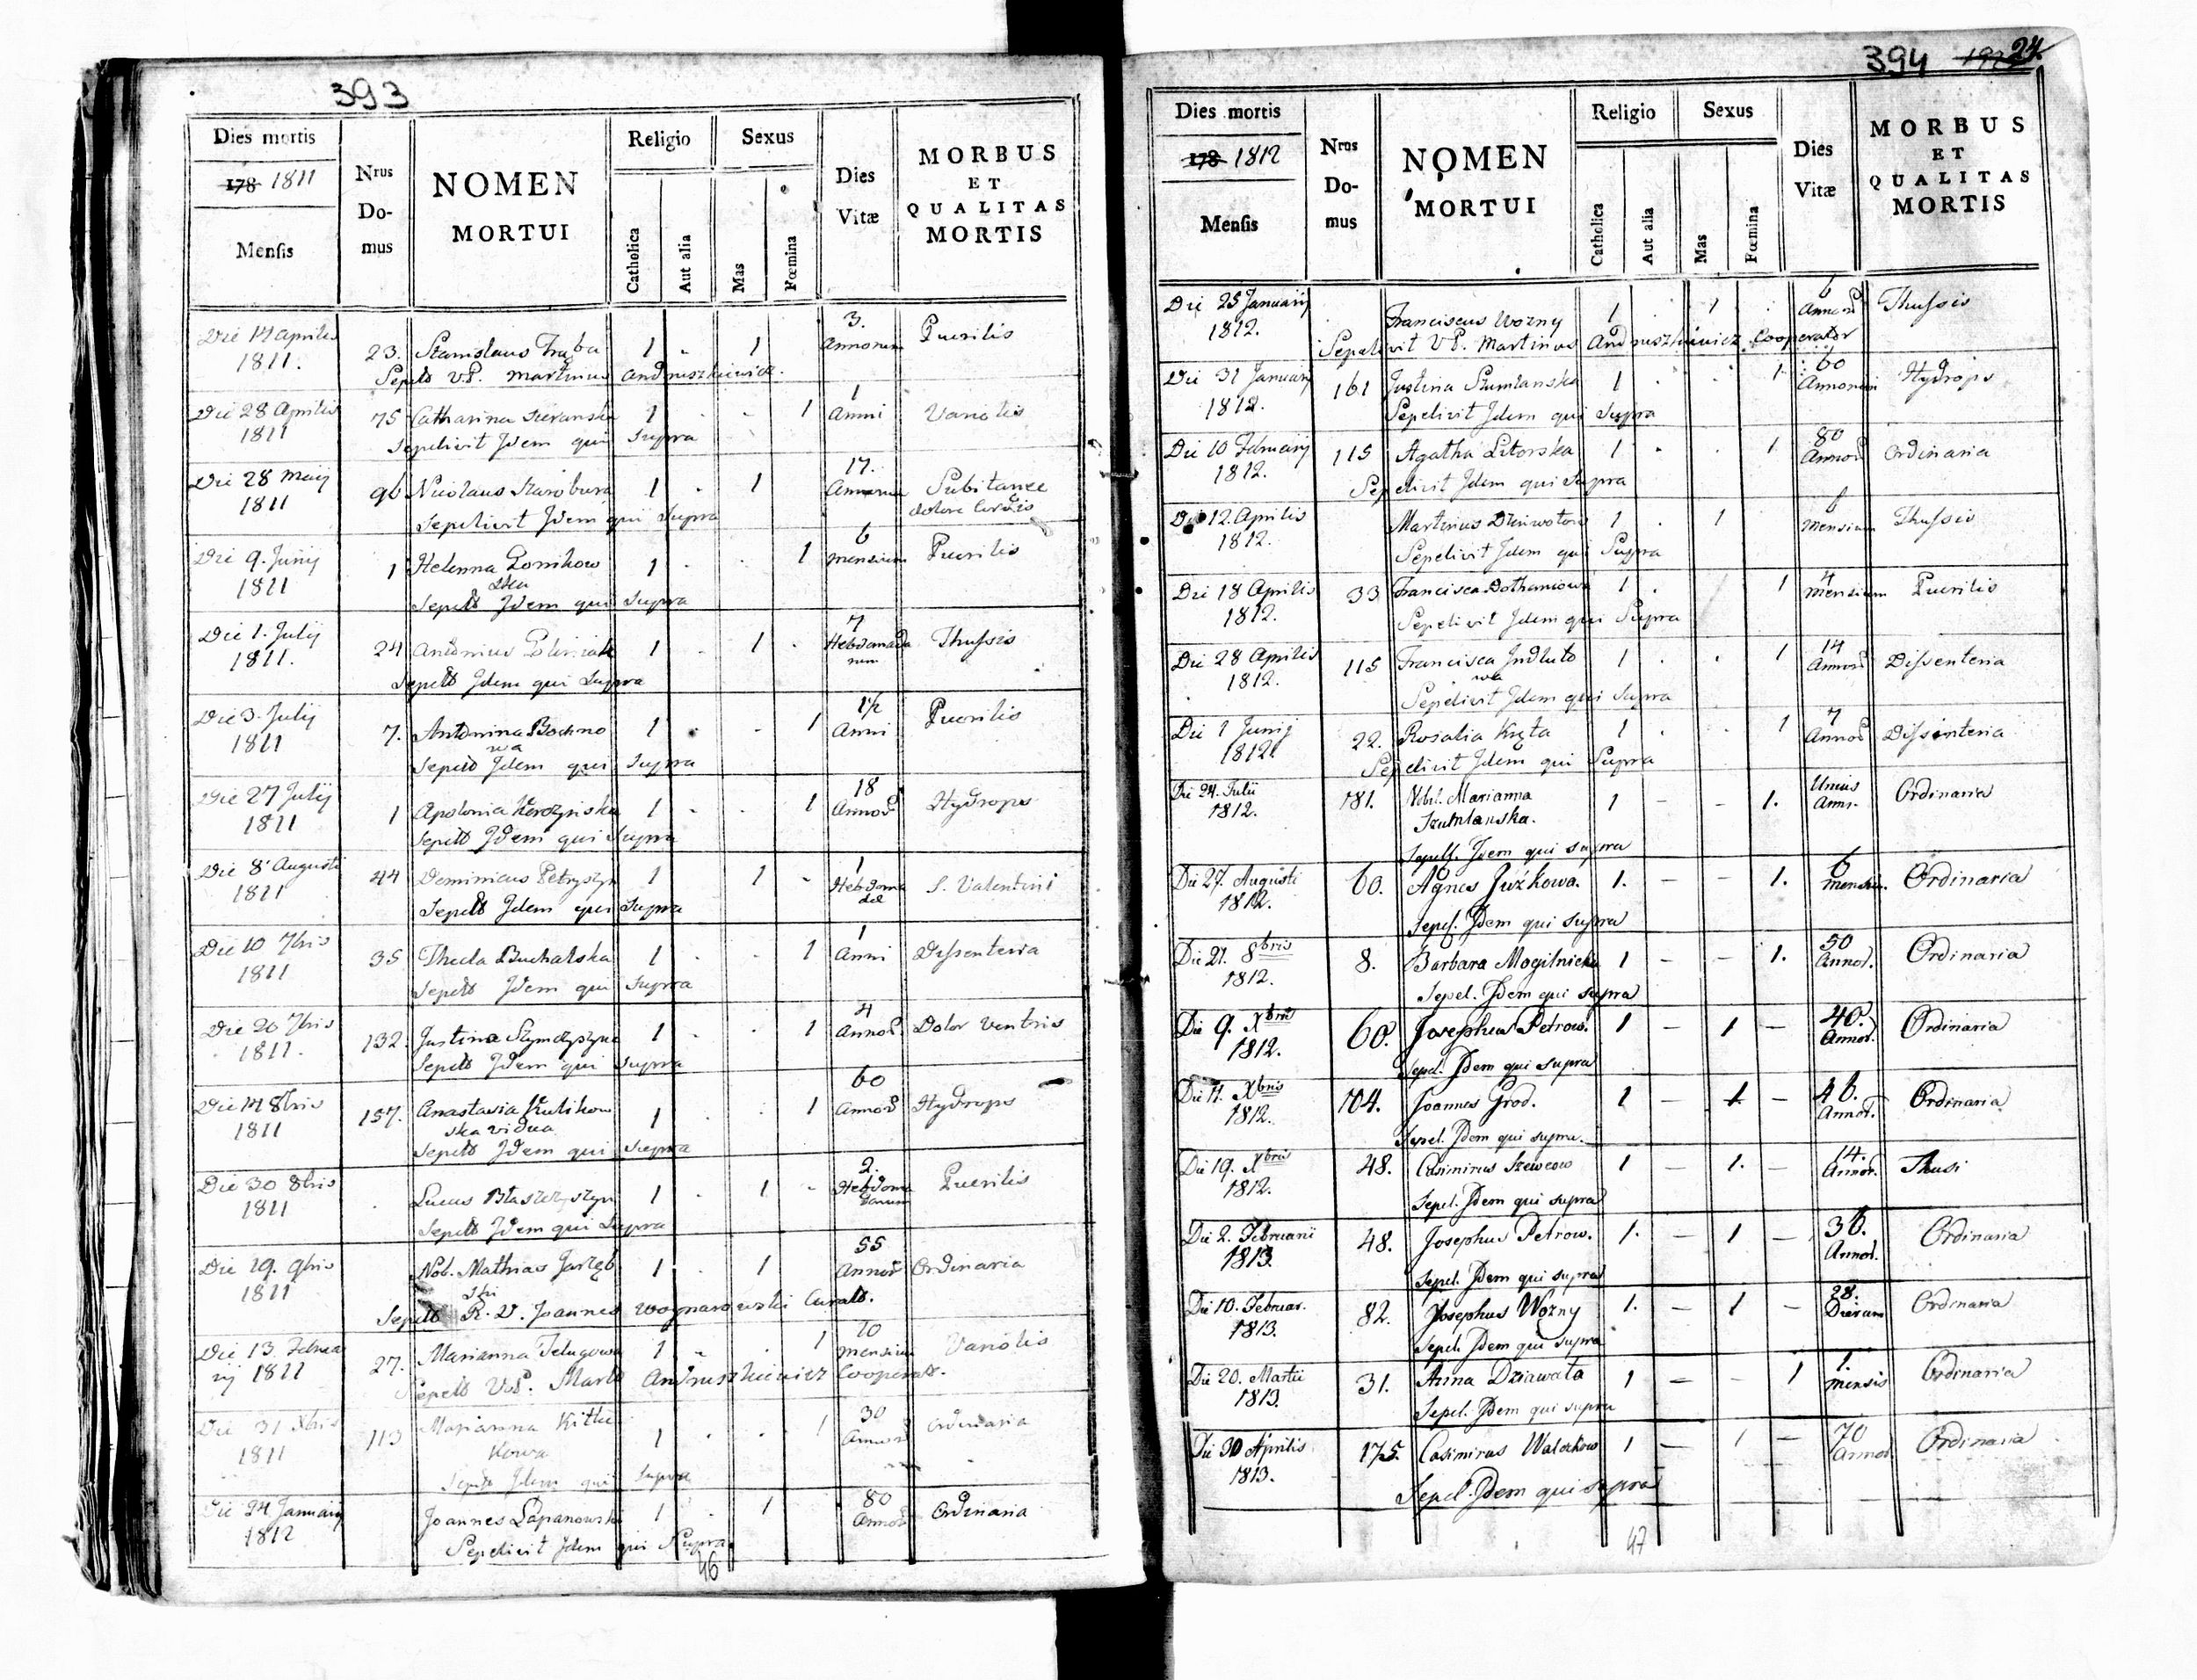 393
Dies mortis
178 1811
Mensis
Nrus
Do-
mus
NOMEN
MORTUI
Religio
Catholica
Aut alia
Sexus
Mas
Fœmina
Dies
Vitæ
MORBUS
ET
QUALITAS
MORTIS
Die 14 Aprilis 23. Stanislaus Trąba 1 - 1 3. Annorum Puerilis
1811.
Sepelt V.P. Martinus Andruszkiewicz.
Die 28 Aprilis 75 Catharina 1 - - 1 1 Anni Variolis
1811
Sepelivit Idem qui Supra
Die 28 Maij 96 Nicolaus Staroburа 1 - 1 17. Annorum Subitanee
1811 dolore Cordis
Sepelivit Idem qui Supra
Die 9. Junij 1 Helenna Lonikow 1 - 1 6 Mensium Puerilis
1811 ska
Sepelt Idem qui Supra
Die 1. Julij 24 Antonius 1 - 1 - 7 Hebdomada Thussis
1811. rum
Sepelt Idem qui Supra
Die 3. Julij 7. Antonina Bochno 1 - 1 1½ Anni Puerilis
1811 wa
Sepelt Idem qui Supra
Die 27 Julij 1 Apolonia 1 - - 1 18 Annor Hydrops
1811
Sepelt Idem qui Supra
Die 8 Augusti 44 Dominicus Petryszyn 1 1 - 1 Hebdoma S. Valentini
1811 dae
Sepelt Idem qui Supra
Die 10 7bris 35 Thecla Buchalska 1 - - 1 1 Anni Dissenteria
1811
Sepelt Idem qui Supra
Die 20 7bris 132. Justina Szymczyszyn 1 - - 1 4 Annor. Dolor Ventris
1811.
Sepelt Idem qui Supra
Die 14 8bris 157. Anastasia Kulikow 1 - - 1 60 Annor Hydrops
1811 ska vidua
Sepelt Idem qui Supra
Die 30 8bris Lucas Błaszczyszyn 1 - 1 - 2. Hebdoma Puerilis
1811 darum
Sepelt Idem qui Supra
Die 19. 9bris Nob. Mathias Jarzęb 1 - 1 55 Annor Ordinaria
1811 ski
Sepelt R. D. Joannes Woynarowski Curatt.
Die 13. Februa 27. Marianna Telugowa 1 - - 1 10 Mensium Variolis
rij 1811
Sepelt V.P. Martt Andruszkiewicz Cooperatt.
Die 31 Xbris 113 Marianna Kitlie 1 - - 1 30 Annor Ordinaria
1811 kowa
Sepelt Idem qui Supra
Die 24 Januarij Joannes Łapanowski 1 - 1 80 Annor Ordinaria
1812
Sepelivit Idem qui Supra.
46
394 24.
Dies mortis
178 1812
Mensis
Nrus
Do-
mus
NOMEN
MORTUI
Religio
Catholica
Aut alia
Sexus
Mas
Fœmina
Dies
Vitæ
MORBUS
ET
QUALITAS
MORTIS
Die 25 Januarij Franciscus Wozny 1 1 6 Annor Thussis
1812.
Sepelivit V.P. Martinus Andruszkiewicz Cooperator
Die 31 Januarij 161 Justina Szumlanska 1 . . 1 60 Annorum Hydrops
1812.
Sepelivit Idem qui Supra
Die 10 Februarij 115 Agatha Litorska 1 . . 1 80 Annor Ordinaria
1812.
Sepelivit Idem qui Supra
Die 12. Aprilis Martinus 1 . 1 6 Mensium Thussis
1812.
Sepelivit Idem qui Supra
Die 18 Aprilis 33 Francisca Dothaniowa 1 . 1 4 Mensium Puerilis
1812.
Sepelivit Idem qui Supra
Die 28 Aprilis 115 Francisca Indluto 1 . . 1 14 Annor Dissenteria
1812. wa
Sepelivit Idem qui Supra
Die 1 Junij 22. Rosalia Kręta 1 . . 1 7 Annor Dissinteria
1812.
Sepelivit Idem qui Supra
Die 24. Julii 181. Nobil. Marianna 1 - - 1. Unius Anni. Ordinaria
1812. Szumlanska.
Sepelt. Idem qui supra
Die 27. Augusti 60. Agnes Juzkowa. 1. - - 1. 6 mensiu. Ordinaria
1812.
Sepel. Idem qui supra
Die 21. 8bris 8. Barbara Mogilnicka 1 - - 1. 50 Annor. Ordinaria
1812.
Sepel. Idem qui supra
Die 9. Xbris 60. Josephus Petrow. 1 - 1 - 40. Annor. Ordinaria
1812.
Sepel. Idem qui supra
Die 11. Xbris 104. Joannes Grod. 1 - 1 - 46. Annor. Ordinaria
1812.
Sepel. Idem qui supra.
Die 19. Xbris 48. Casimirus Szewcow 1 - 1. - 14. Annor. Thusi
1812.
Sepel. Idem qui supra
Die 2. Februarii 48. Josephus Petrow. 1. - 1 - 36. Annor. Ordinaria
1813.
Sepel. Idem qui supra
Die 10. Februar. 82. Josephus Wozny 1. - 1 - 28. Dierum Ordinaria
1813.
Sepel. Idem qui supra
Die 20. Martii 31. Anna Dziawała 1 - 1 1. mensis Ordinaria
1813.
Sepel. Idem qui supra
Die 30 Aprilis 175. Casimirus Waleckow 1 - 1 - 70 Annor. Ordinaria
1813.
Sepel. Idem qui supra
47